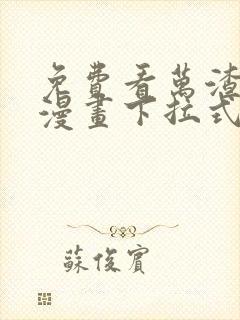 免費看萬渣
漫畫下拉式
蘇俊賓